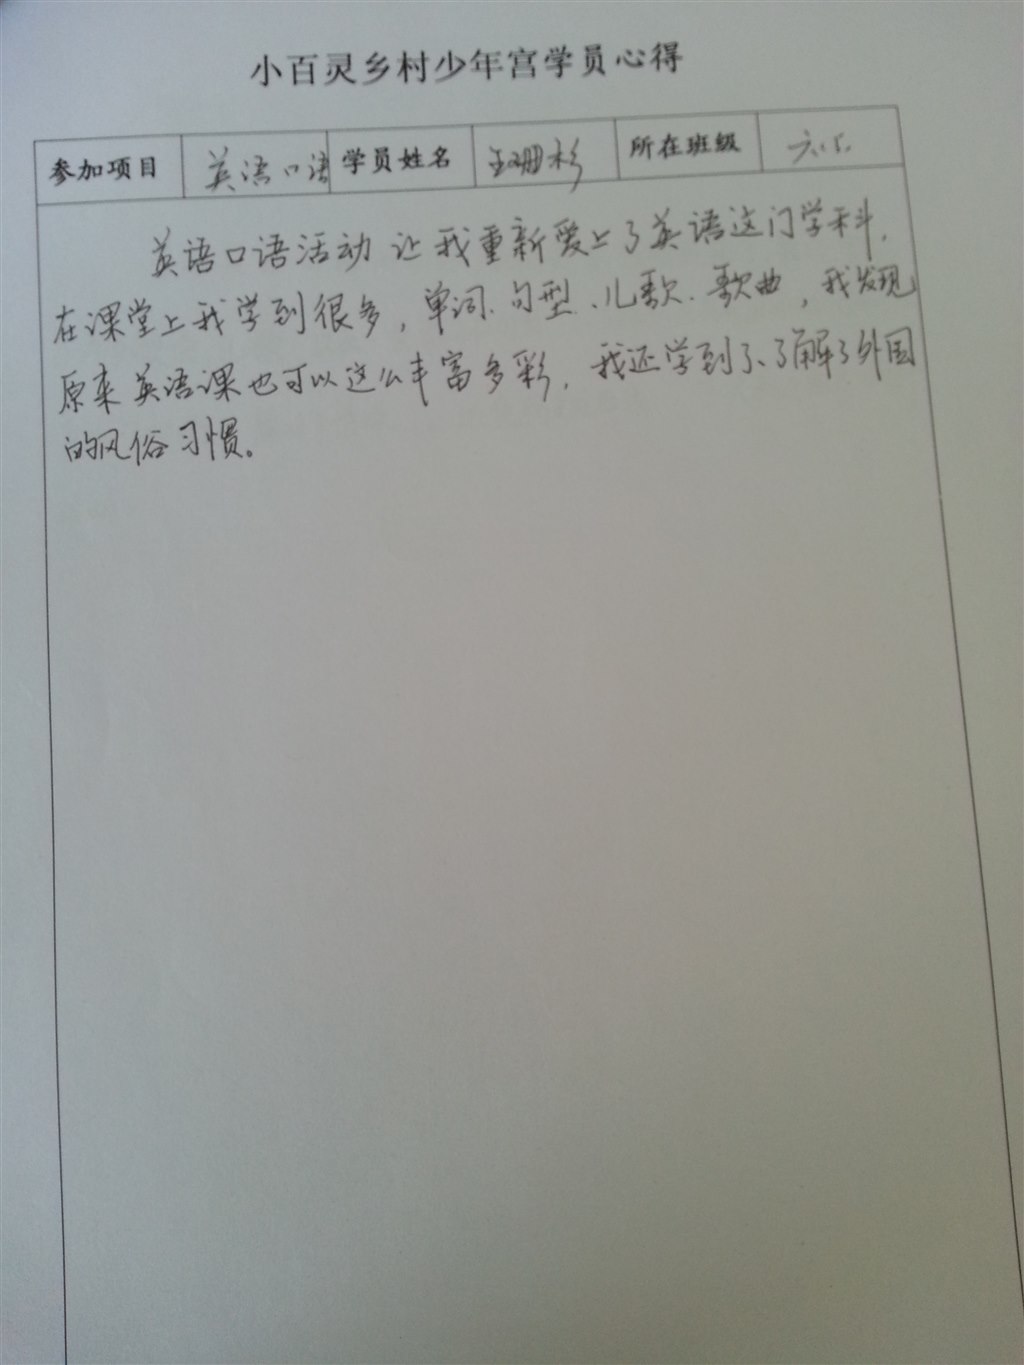 小百灵乡村少年宫学员心得
参加项目 英语口语 学员姓名 王珊杉 所在班级 六.5.
英语口语活动让我重新爱上了英语这门学科,
在课堂上我学到很多,单词、句型、儿歌、歌曲,我发现
原来英语课也可以这么丰富多彩,我还学到了、了解了外国
的风俗习惯。